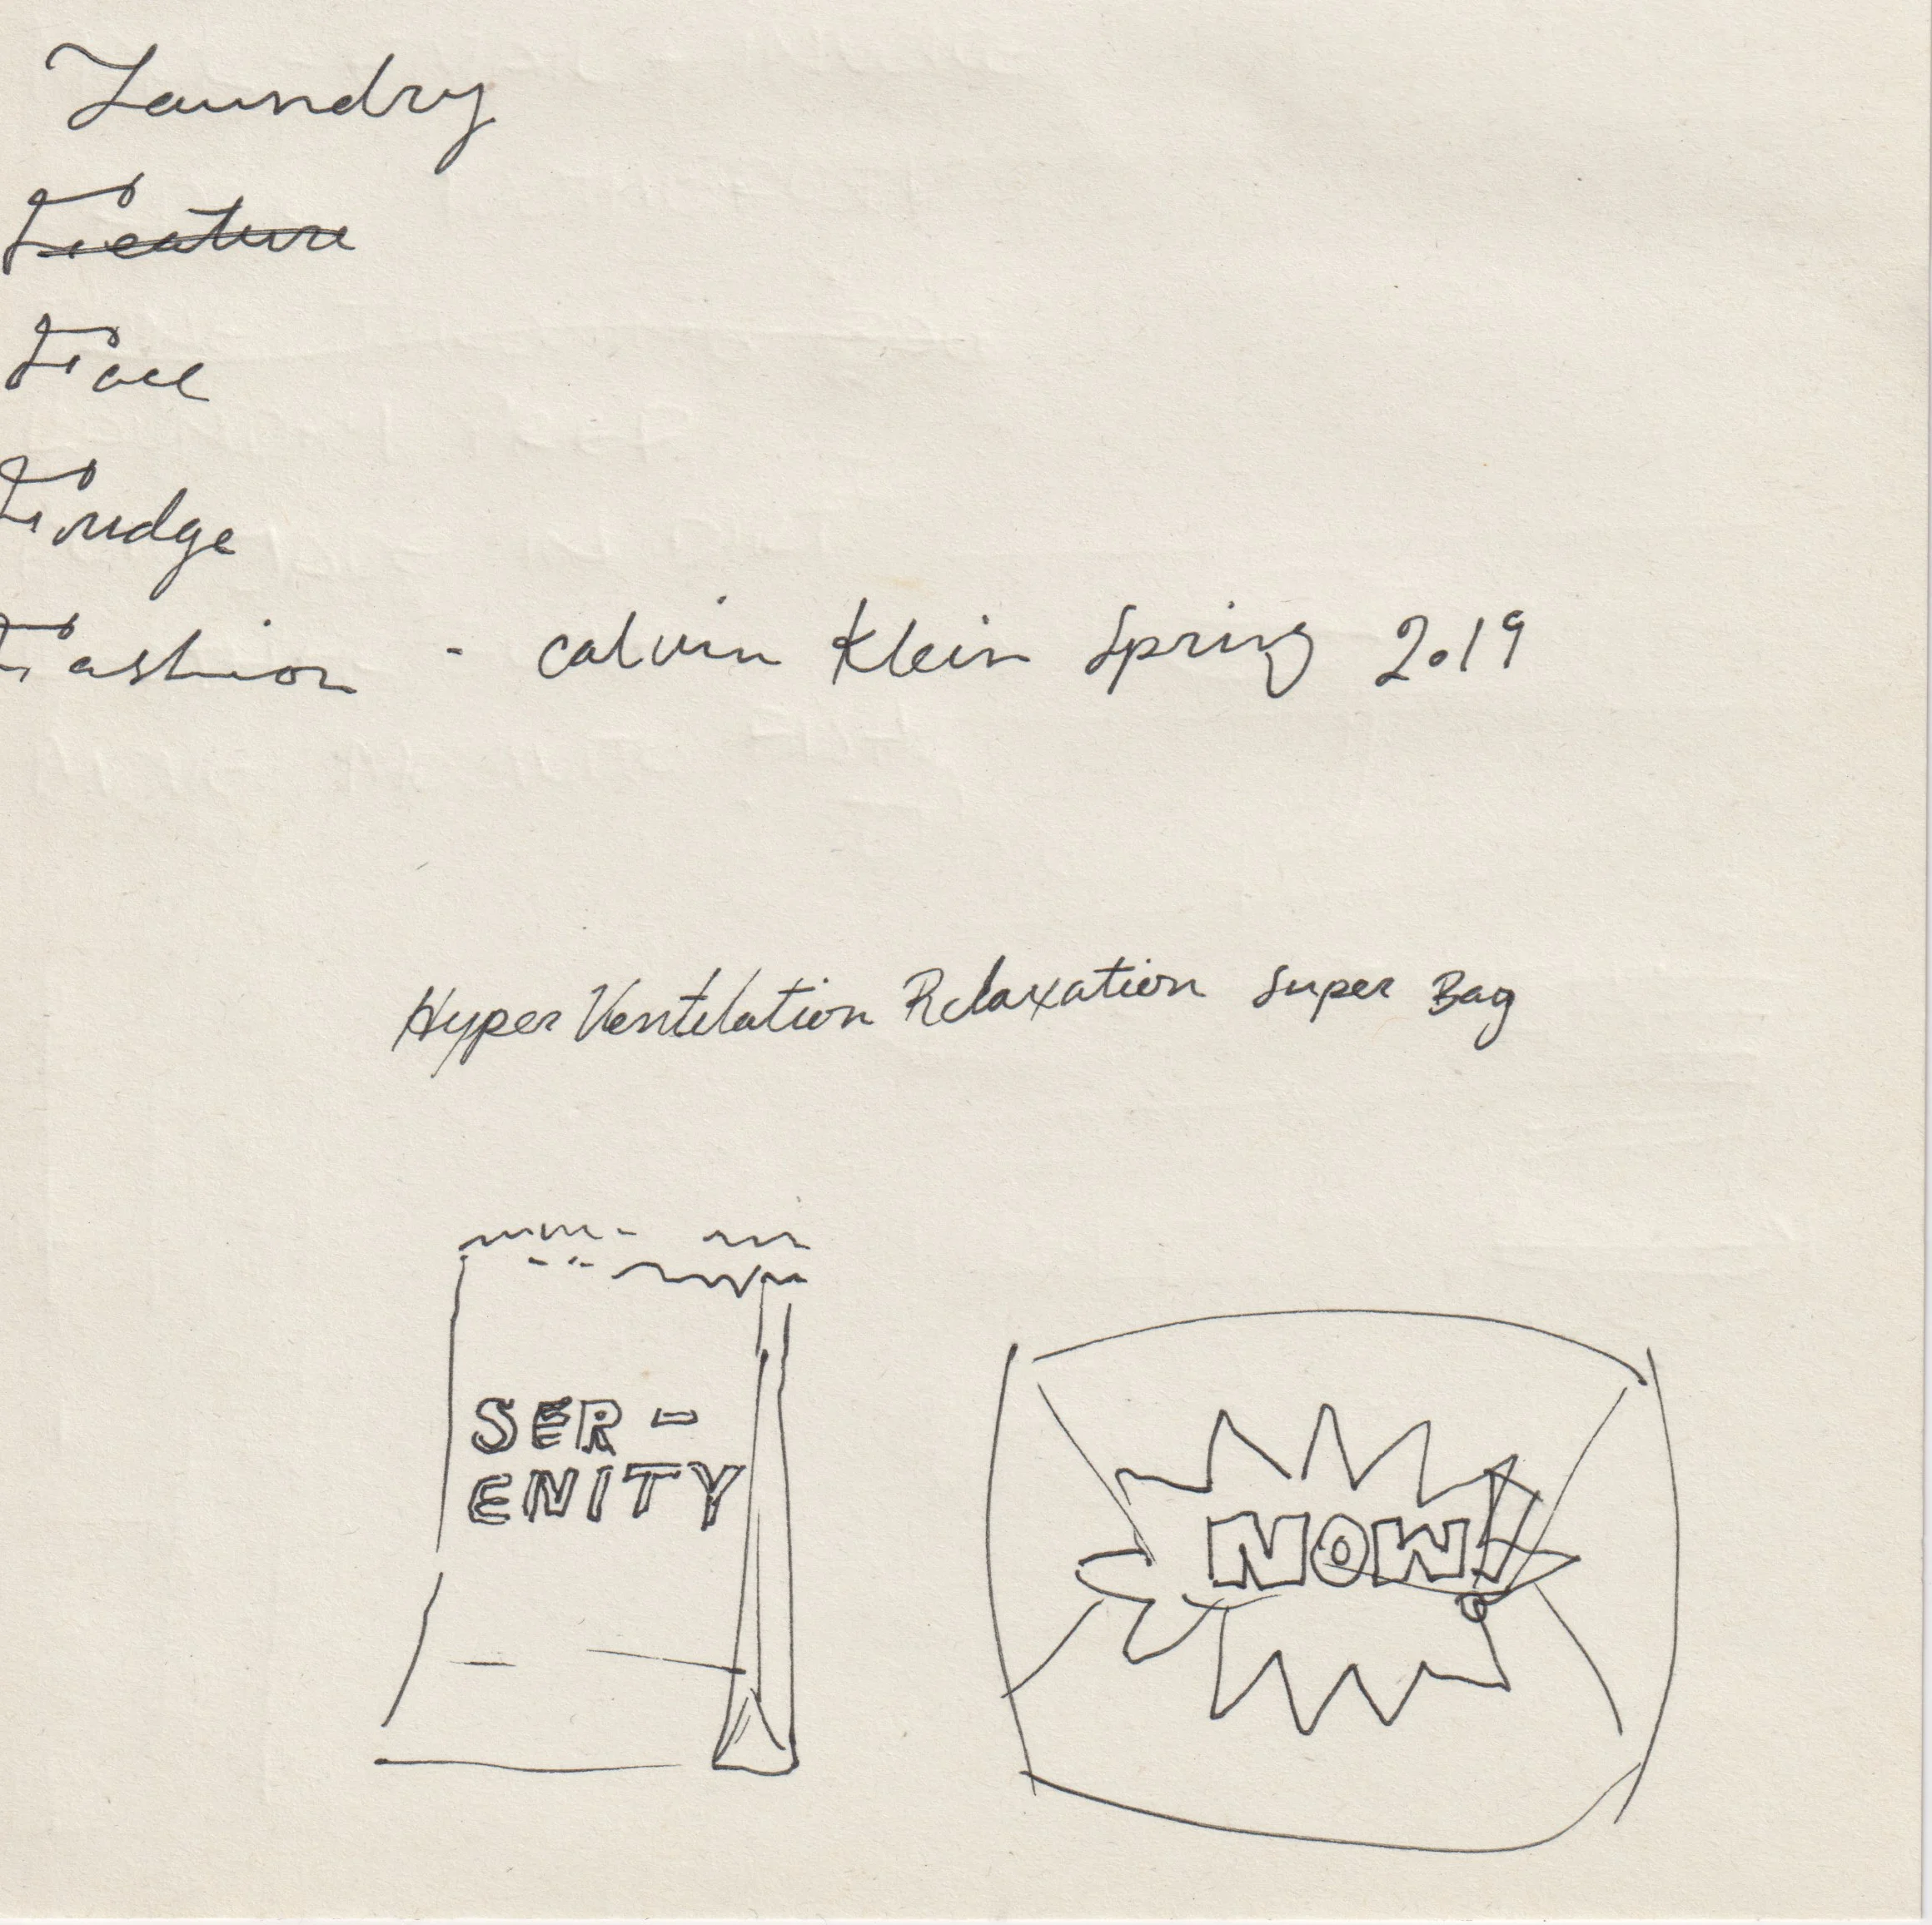 Laundry
Feature
Face
Fudge
Fashion - Calvin Klein Spring 2019
Hyper Ventilation Relaxation Super Bag
SER-
ENITY
NOW!